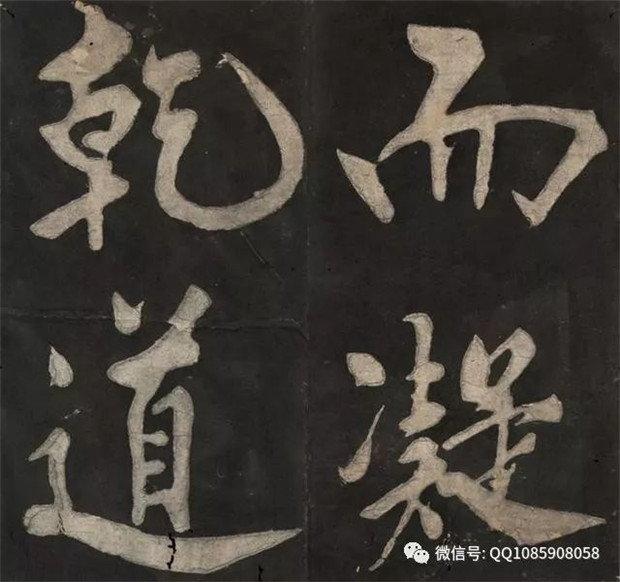 而凝
乾道
微信号: QQ1085908058